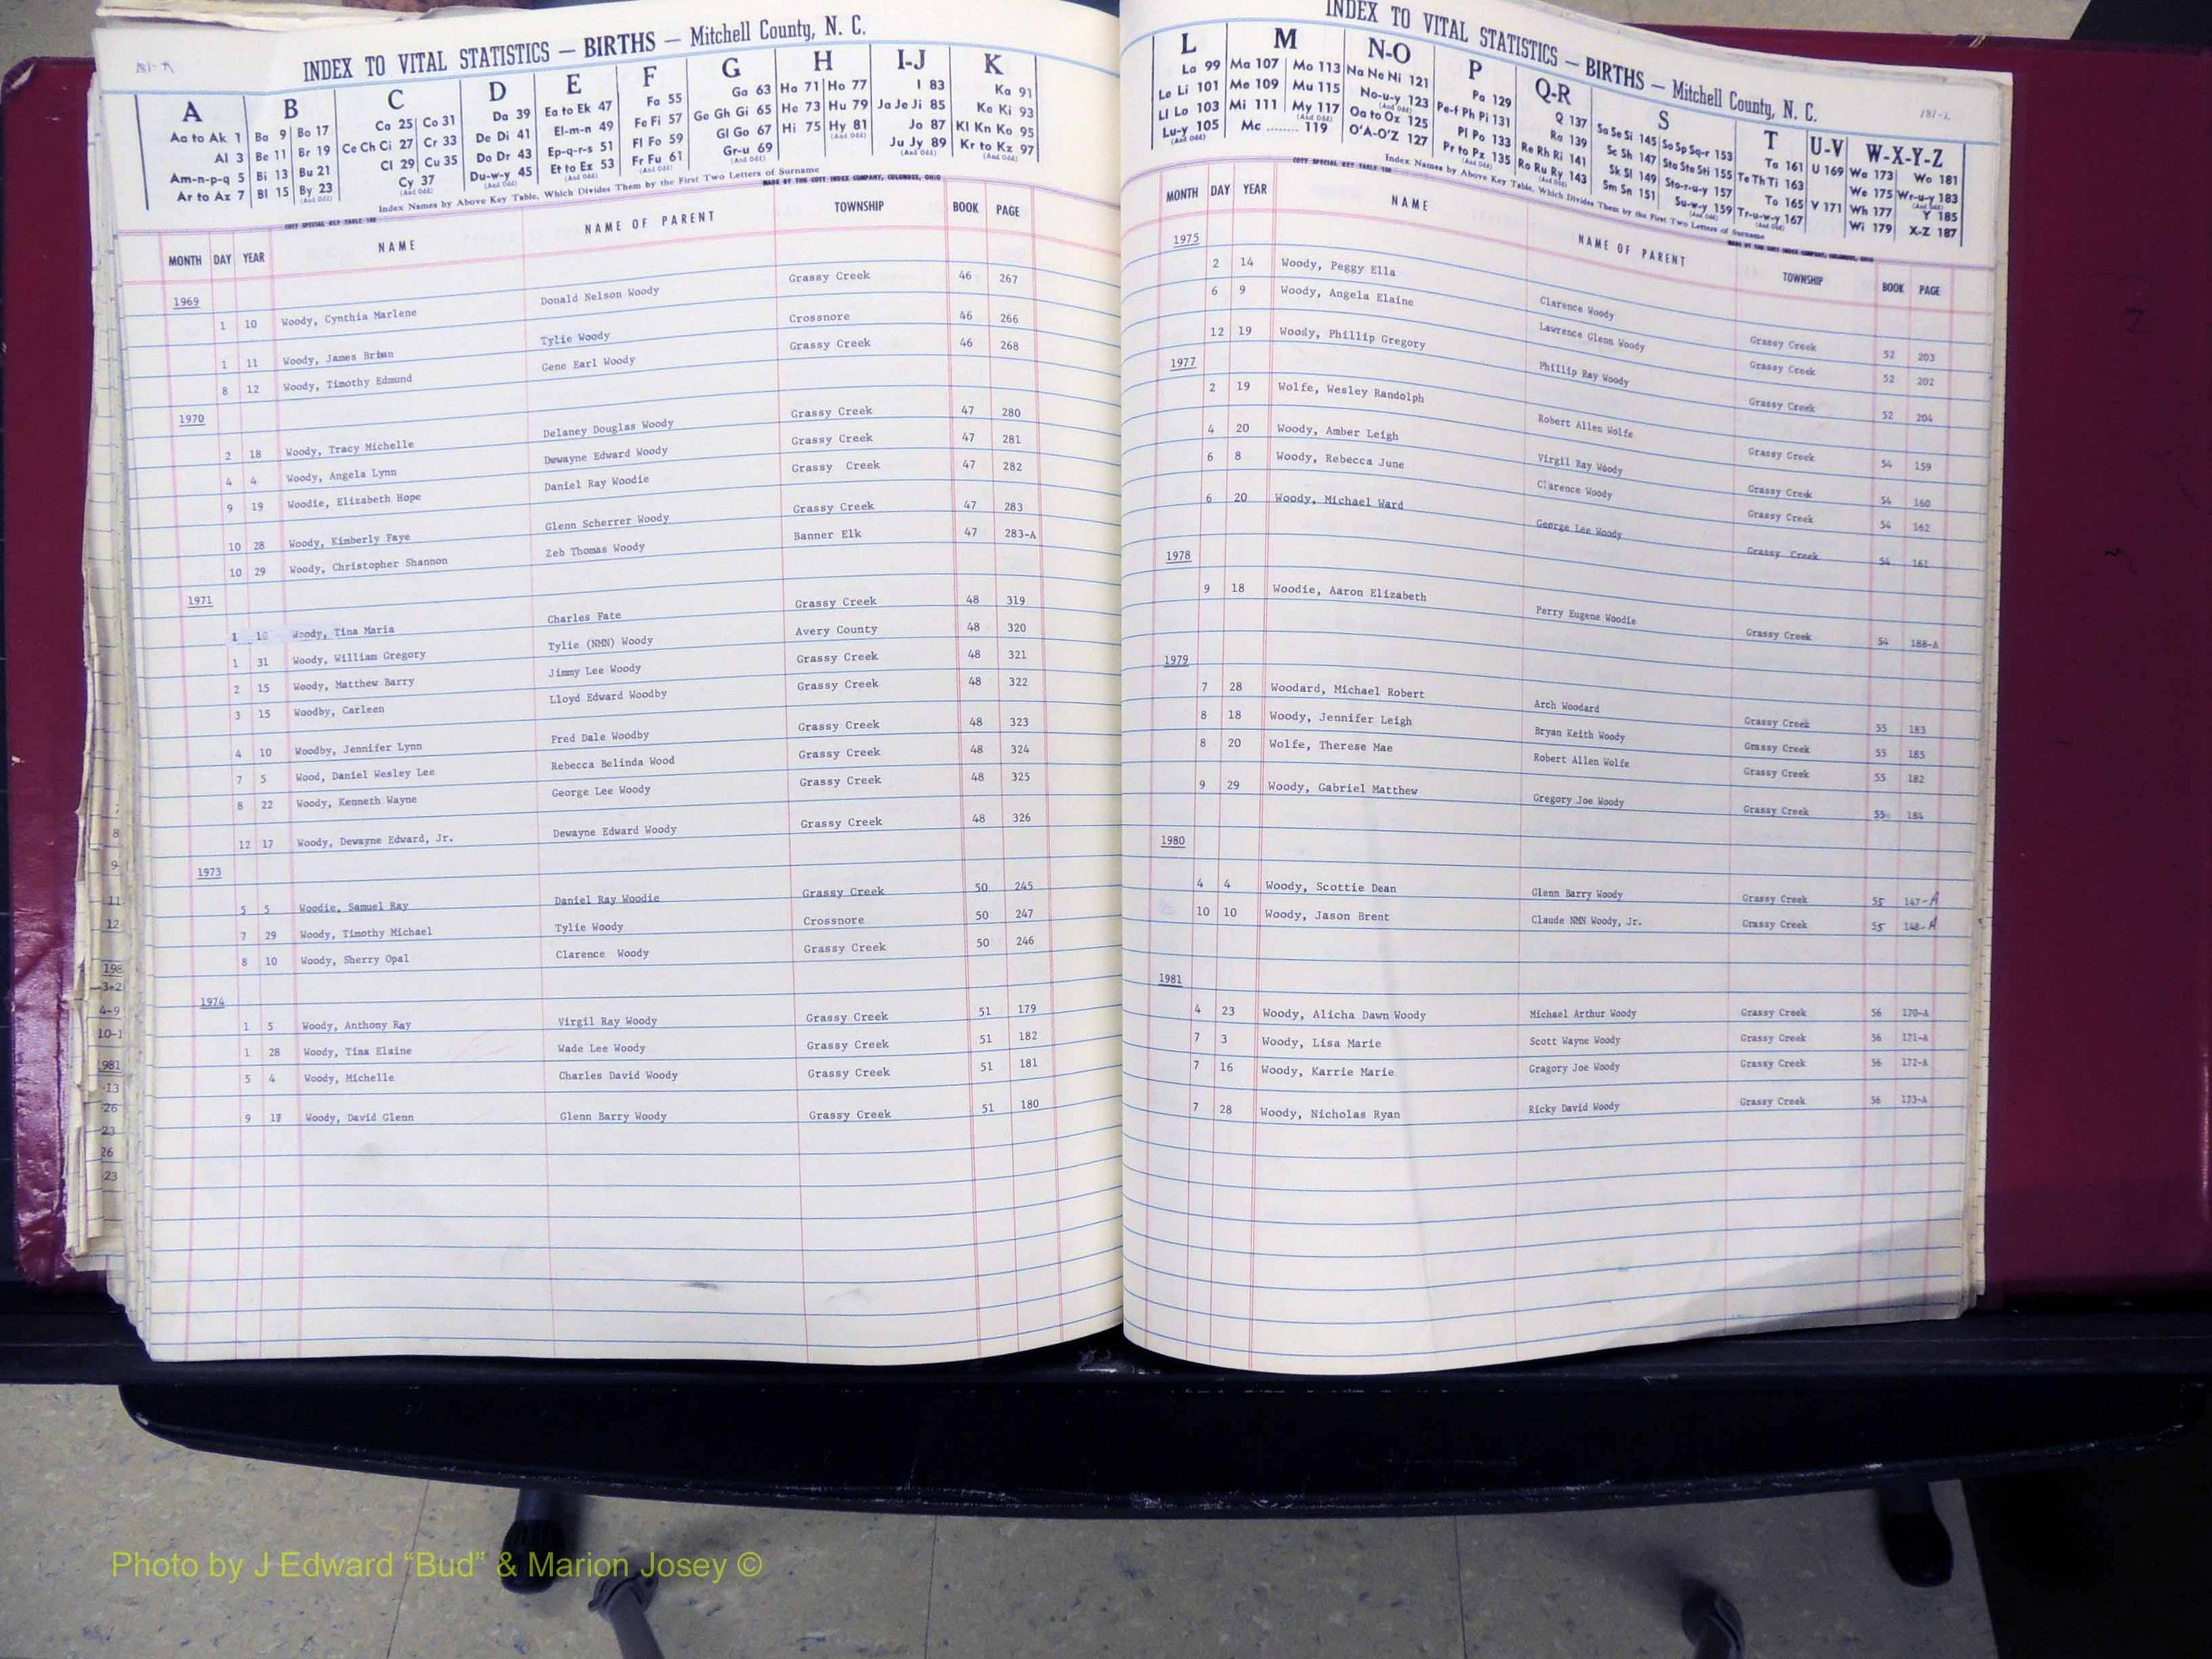 181-K
INDEX TO VITAL STATISTICS — BIRTHS — Mitchell County, N. C.
A B C D E F G H I-J K
Aa to Ak 1 Ba 9 Bo 17 Ca 25 Co 31 Da 39 Ea to Ek 47 Fa 55 Ga 63 Ha 71 Ho 77 I 83 Ka 91
Al 3 Be 11 Br 19 Ce Ch Ci 27 Cr 33 De Di 41 El-m-n 49 Fe Fi 57 Ge Gh Gi 65 He 73 Hu 79 Ja Je Ji 85 Ke Ki 93
Am-n-p-q 5 Bi 13 Bu 21 Cl 29 Cu 35 Do Dr 43 Ep-q-r-s 51 Fl Fo 59 Gl Go 67 Hi 75 Hy 81 (And Odd) Jo 87 Kl Kn Ko 95
Ar to Az 7 Bl 15 By 23 (And Odd) Cy 37 (And Odd) Du-w-y 45 (And Odd) Et to Ez 53 (And Odd) Fr Fu 61 (And Odd) Gr-u 69 (And Odd) Ju Jy 89 (And Odd) Kr to Kz 97 (And Odd)
Index Names by Above Key Table, Which Divides Them by the First Two Letters of Surname
COTT SPECIAL KEY TABLE 188 MADE BY THE COTT INDEX COMPANY, COLUMBUS, OHIO
MONTH DAY YEAR NAME NAME OF PARENT TOWNSHIP BOOK PAGE
1969
1 10 Woody, Cynthia Marlene Donald Nelson Woody Grassy Creek 46 267
1 11 Woody, James Brian Tylie Woody Crossnore 46 266
8 12 Woody, Timothy Edmund Gene Earl Woody Grassy Creek 46 268
1970
2 18 Woody, Tracy Michelle Delaney Douglas Woody Grassy Creek 47 280
4 4 Woody, Angela Lynn Dewayne Edward Woody Grassy Creek 47 281
9 19 Woodie, Elizabeth Hope Daniel Ray Woodie Grassy Creek 47 282
10 28 Woody, Kimberly Faye Glenn Scherrer Woody Grassy Creek 47 283
10 29 Woody, Christopher Shannon Zeb Thomas Woody Banner Elk 47 283-A
1971
1 10 Woody, Tina Maria Charles Fate Grassy Creek 48 319
1 31 Woody, William Gregory Tylie (NMN) Woody Avery County 48 320
2 15 Woody, Matthew Barry Jimmy Lee Woody Grassy Creek 48 321
3 15 Woodby, Carleen Lloyd Edward Woodby Grassy Creek 48 322
4 10 Woodby, Jennifer Lynn Fred Dale Woodby Grassy Creek 48 323
7 5 Wood, Daniel Wesley Lee Rebecca Belinda Wood Grassy Creek 48 324
8 22 Woody, Kenneth Wayne George Lee Woody Grassy Creek 48 325
12 17 Woody, Dewayne Edward, Jr. Dewayne Edward Woody Grassy Creek 48 326
1973
5 5 Woodie, Samuel Ray Daniel Ray Woodie Grassy Creek 50 245
7 29 Woody, Timothy Michael Tylie Woody Crossnore 50 247
8 10 Woody, Sherry Opal Clarence Woody Grassy Creek 50 246
1974
1 5 Woody, Anthony Ray Virgil Ray Woody Grassy Creek 51 179
1 28 Woody, Tina Elaine Wade Lee Woody Grassy Creek 51 182
5 4 Woody, Michelle Charles David Woody Grassy Creek 51 181
9 17 Woody, David Glenn Glenn Barry Woody Grassy Creek 51 180
8
9
11
12
198
3-2
4-9
10-1
981
-13
26
23
26
23
181-L
INDEX TO VITAL STATISTICS — BIRTHS — Mitchell County, N. C.
L M N-O P Q-R S T U-V W-X-Y-Z
La 99 Ma 107 Mo 113 Na Ne Ni 121 Pa 129 Q 137 Sa Se Si 145 So Sp Sq-r 153 Ta 161 U 169 Wa 173 Wo 181
Le Li 101 Me 109 Mu 115 No-u-y 123 (And Odd) Pe-f Ph Pi 131 Ra 139 Sc Sh 147 Sta Ste Sti 155 Te Th Ti 163 We 175 Wr-u-y 183 (And Odd)
Ll Lo 103 Mi 111 My 117 (And Odd) Oa to Oz 125 Pl Po 133 Re Rh Ri 141 Sk Sl 149 Sto-r-u-y 157 To 165 V 171 Wh 177 Y 185
Lu-y 105 (And Odd) Mc ........ 119 O'A-O'Z 127 Pr to Pz 135 (And Odd) Ro Ru Ry 143 Sm Sn 151 Su-w-y 159 (And Odd) Tr-u-w-y 167 (And Odd) Wi 179 X-Z 187
COTT SPECIAL KEY TABLE 188 Index Names by Above Key Table, Which Divides Them by the First Two Letters of Surname
MADE BY THE COTT INDEX COMPANY, COLUMBUS, OHIO
MONTH DAY YEAR NAME NAME OF PARENT TOWNSHIP BOOK PAGE
1975
2 14 Woody, Peggy Ella Clarence Woody Grassy Creek 52 203
6 9 Woody, Angela Elaine Lawrence Glenn Woody Grassy Creek 52 202
12 19 Woody, Phillip Gregory Phillip Ray Woody Grassy Creek 52 204
1977
2 19 Wolfe, Wesley Randolph Robert Allen Wolfe Grassy Creek 54 159
4 20 Woody, Amber Leigh Virgil Ray Woody Grassy Creek 54 160
6 8 Woody, Rebecca June Clarence Woody Grassy Creek 54 162
6 20 Woody, Michael Ward George Lee Woody Grassy Creek 54 161
1978
9 18 Woodie, Aaron Elizabeth Perry Eugene Woodie Grassy Creek 54 188-A
1979
7 28 Woodard, Michael Robert Arch Woodard Grassy Creek 55 183
8 18 Woody, Jennifer Leigh Bryan Keith Woody Grassy Creek 55 185
8 20 Wolfe, Therese Mae Robert Allen Wolfe Grassy Creek 55 182
9 29 Woody, Gabriel Matthew Gregory Joe Woody Grassy Creek 55 184
1980
4 4 Woody, Scottie Dean Glenn Barry Woody Grassy Creek 55 147-A
10 10 Woody, Jason Brent Claude NMN Woody, Jr. Grassy Creek 55 148-A
1981
4 23 Woody, Alicha Dawn Woody Michael Arthur Woody Grassy Creek 56 170-A
7 3 Woody, Lisa Marie Scott Wayne Woody Grassy Creek 56 171-A
7 16 Woody, Karrie Marie Gragory Joe Woody Grassy Creek 56 172-A
7 28 Woody, Nicholas Ryan Ricky David Woody Grassy Creek 56 173-A
Photo by J Edward “Bud” & Marion Josey ©